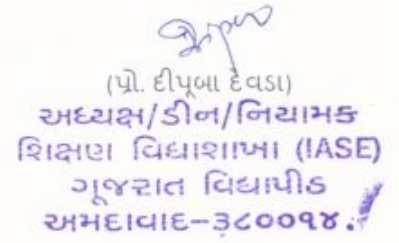 (પ્રો. દીપૂબા દેવડા)
અધ્યક્ષ/ડીન/નિયામક
શિક્ષણ વિદ્યાશાખા (IASE)
ગૂજરાત વિદ્યાપીઠ
અમદાવાદ-૩૮૦૦૧૪.